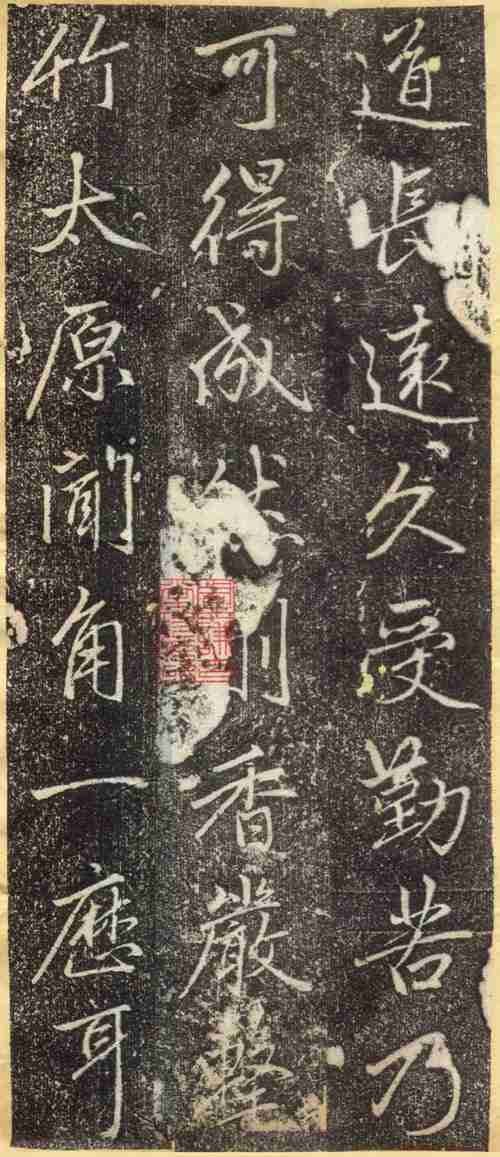 道長遠久受勤苦乃
可得成然則香嚴擊
竹太原聞角一歷耳